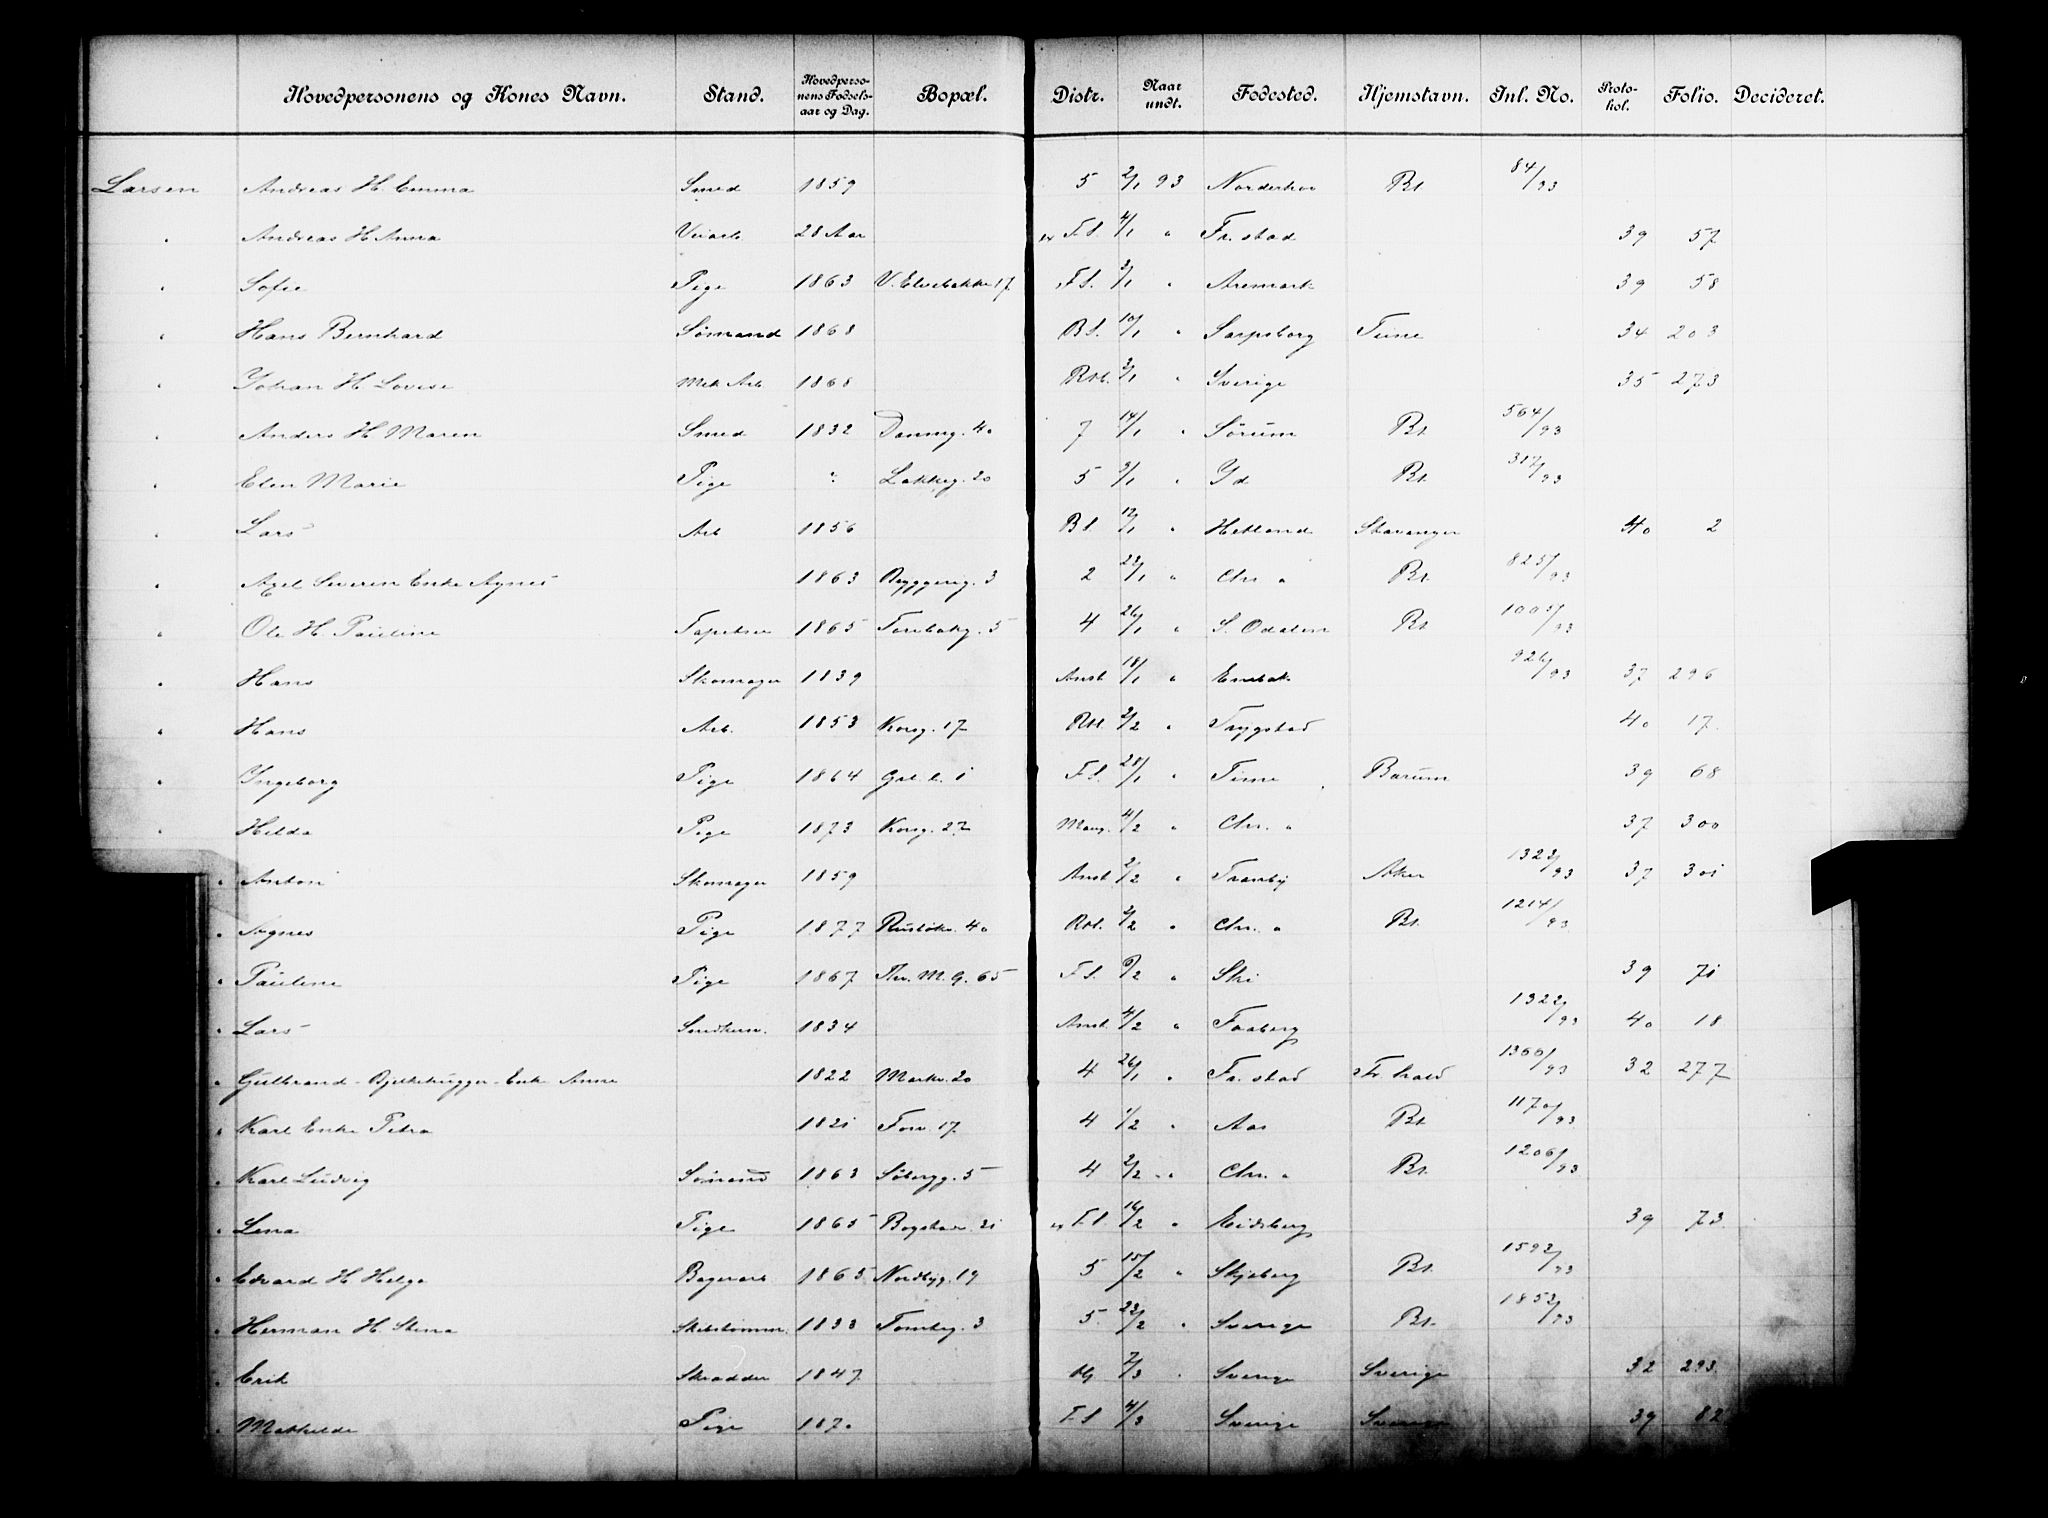 Hovedpersonens og Kones Navn. Stand. Hovedpersonens Fødselsaar og Dag. Bopæl. Distr. Naar undt. Fødested. Hjemstavn. Inl. No. Protokol. Folio. Decideret.
Larsen Andreas H. Emma Smed 1859 5 2/1 93 Norderhov Bt. 84/93
" Andreas H. Anna 28 Aar F.S. 4/1 " Fr.stad 39 57
" Sofie Pige 1863 V. Elvebakke 17 F.S. 3/1 " Aremark 39 58
" Hans Bernhard Sømand 1868 B.S. 10/1 " Sarpsborg Tune 34 203
" Johan H. Lovise Mek Arb 1868 3/1 " Sverige 35 273
" Anders H. Maren Smed 1832 40 7 14/1 " Sørum Bt. 564/93
" Elen Marie Pige " Lakkeg. 20 5 9/1 " Id Bt. 317/93
" Lars Arb 1856 B.S. 12/1 " Hetland Stavanger 40 2
" Axel Severin Enke Agnes 1863 Byggerig. 3 2 23/1 " Chr. a Bt. 825/93
" Ole H. Pauline Tapetser 1865 Forebakg. 5 4 26/1 " S. Odalen Bt. 1005/93
" Hans Skomager 1839 Anst. 18/1 " Enebak 926/93 37 296
" Hans Arb. 1853 Korsg. 17 2/2 " Trygstad 40 17
" Ingeborg Pige 1864 F.S. 28/1 " Tune Barum 39 68
" Hilda Pige 1873 Korsg. 27 Mang. 4/2 " Chr. a 37 300
" Anton Skomager 1859 Anst 2/2 " Tranby Aker 1323/93 37 301
" Agnes Pige 1877 Ruseløkv. 40 2/2 " Chr. a Bt. 1214/93
" Pauline Pige 1867 Thv. M. G. 65 F.S. 9/2 " Ski 39 71
" Lars 1834 Anst. 4/2 " Faaberg 1322/93 40 18
" Gulbrand Bjelkehugger Enke Anne 1822 Markv. 20 4 26/1 " Fr.stad Fr.hald 1360/93 32 277
" Karl Enke Petra 1821 Fosv. 17 4 1/2 " Aas Bt. 1170/93
" Karl Ludvig Sømand 1863 Søbergg. 5 4 2/2 " Chr. a Bt. 1206/93
" Lena Pige 1865 Bogstadv. 21 F.S. 16/2 " Eidsberg 39 73
" Edvard H. Helga Bagerarb 1865 Nordbyg. 19 5 15/2 " Skjeberg Bt. 1593/93
" Herman H. Stina Skibstømm. 1833 Tomteg. 3 5 23/2 " Sverige Bt. 1853/93
" Erik Skrædder 1847 7/3 " Sverige Sverige 32 293
" Mathilde Pige 1870 F.S. 4/3 Sverige Sverige 39 82